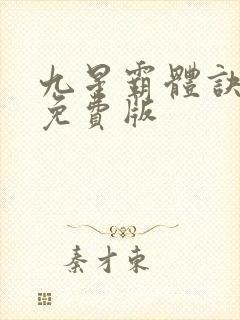 九星霸體訣
免費版
秦才東